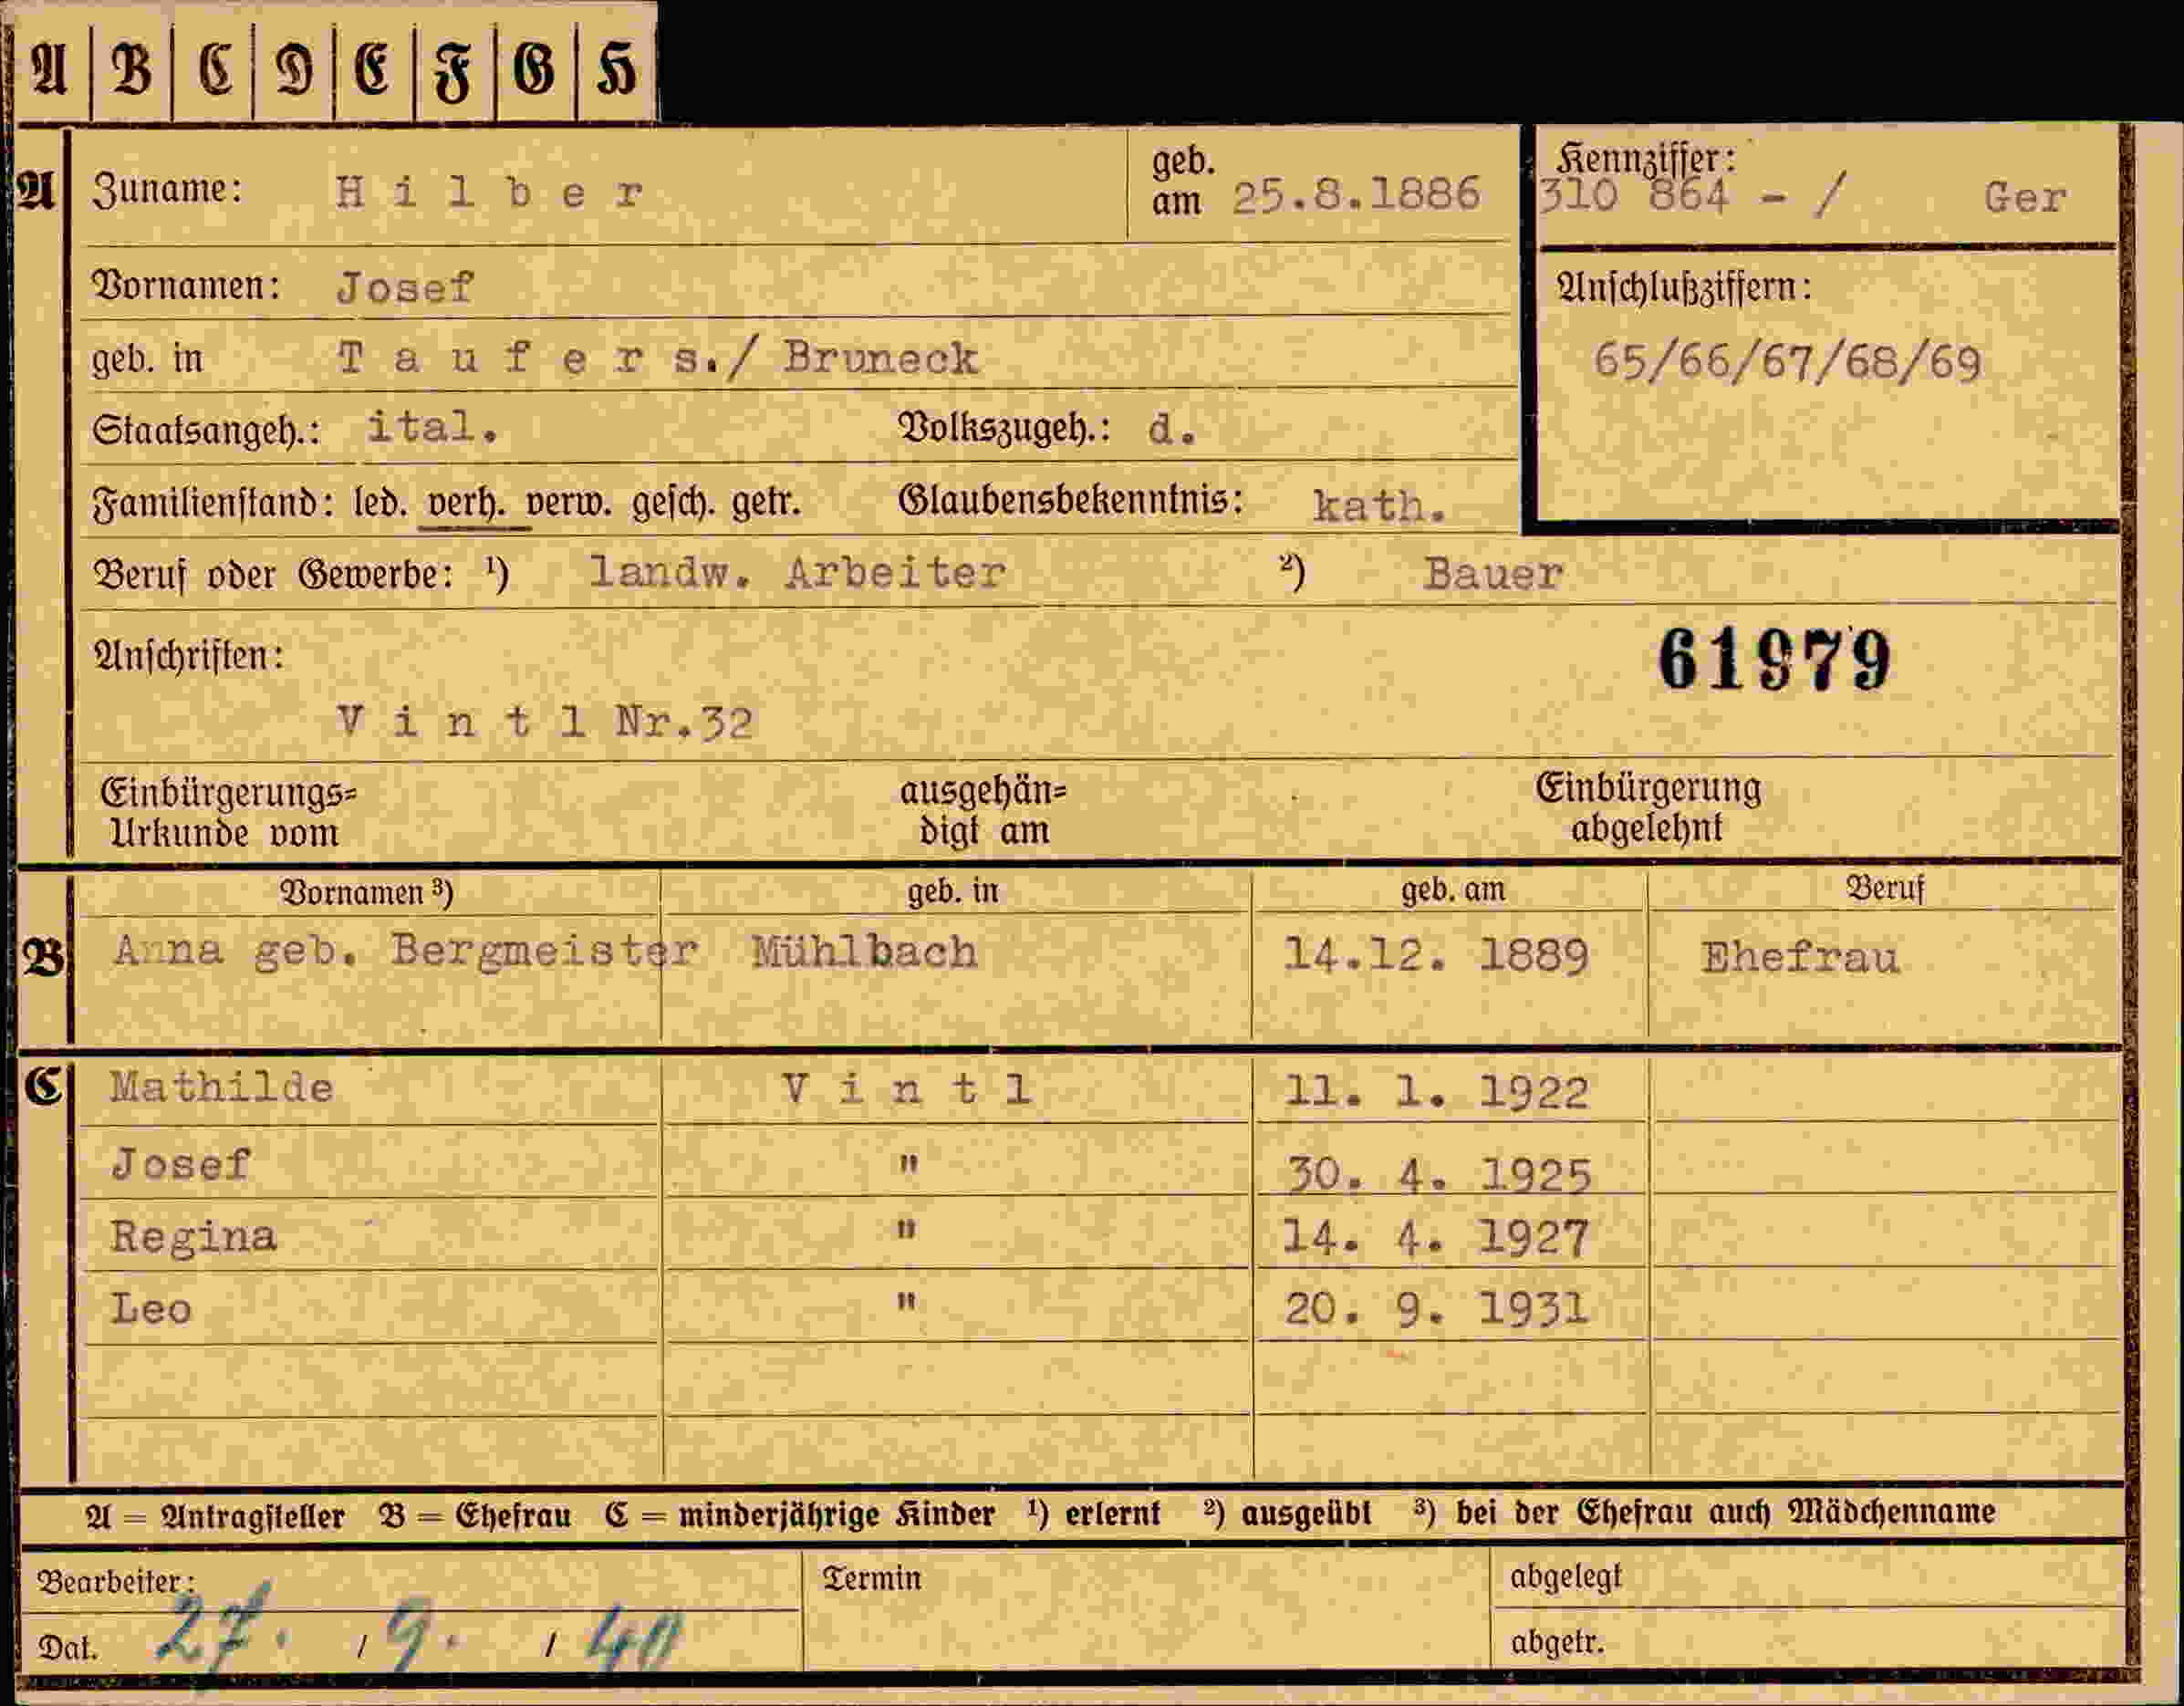 A B C D E F G H
A Zuname: Hilber geb. am 25.8.1886 Kennziffer: 310 864 - / Ger
Vornamen: Josef Anschlußziffern:
geb. in Taufers./ Bruneck 65/66/67/68/69
Staatsangeh.: ital. Volkszugeh.: d.
Familienstand: led. verh. verw. gesch. getr. Glaubensbekenntnis: kath.
Beruf oder Gewerbe: ¹) landw. Arbeiter ²) Bauer
Anschriften: 61979
Vintl Nr.32
Einbürgerungs= ausgehän= Einbürgerung
Urkunde vom digt am abgelehnt
Vornamen ³) geb. in geb. am Beruf
B Anna geb. Bergmeister Mühlbach 14.12. 1889 Ehefrau
C Mathilde Vintl 11. 1. 1922
Josef " 30. 4. 1925
Regina " 14. 4. 1927
Leo " 20. 9. 1931
A = Antragsteller B = Ehefrau C = minderjährige Kinder ¹) erlernt ²) ausgeübt ³) bei der Ehefrau auch Mädchenname
Bearbeiter: Termin abgelegt
Dat. 27. / 9. / 40 abgetr.